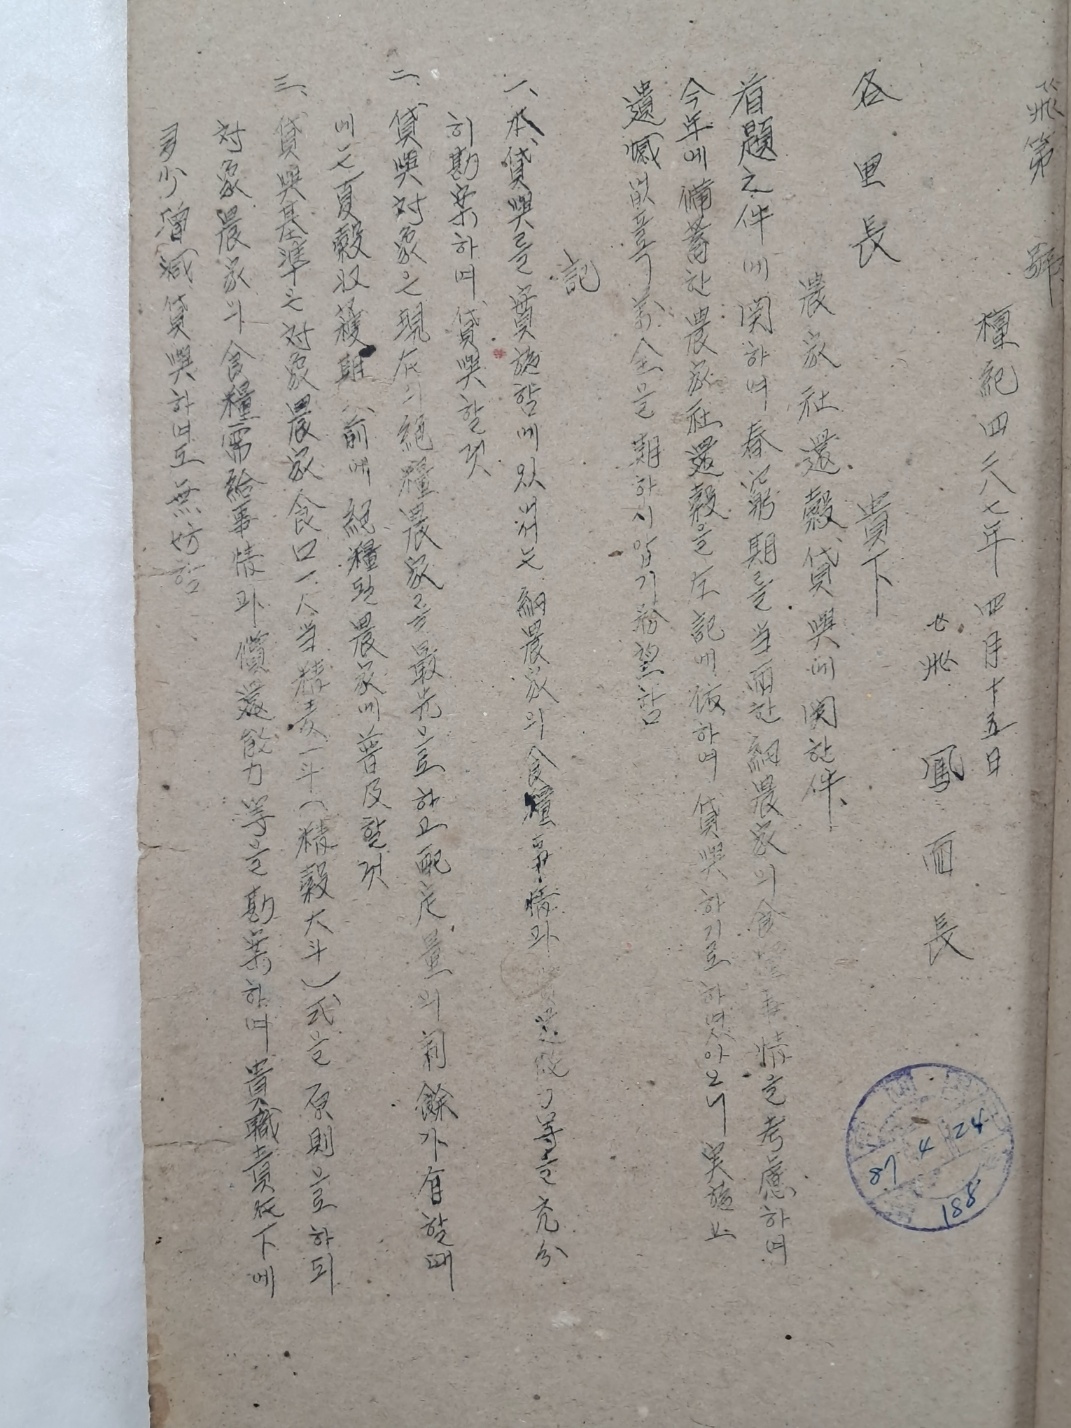 飛第 號
檀紀四二八七年四月十五日
飛鳳面長
各里長 貴下
農家社還穀貸與에関한件
首題之件에関하여春窮期를当面한細農家의食糧事情을考慮하여
今年에備蓄한農家社還穀을左記에依하여貸與하기로하였아오니実施上
遺憾없을萬全을期하시압기務望함
記
一、本貸與를實施함에있어서는細農家의食糧事情과 等을充分
히勘案하여貸與할것
二、貸與対象은現在의絶糧農家를最先으로하고配定量의剰餘가有할때
에는夏穀収穫期以前에絶糧될農家에普及할것
三、貸與基準은対象農家食口一人当精麦一斗(精穀大斗)式을原則으로하되
対象農家의食糧需給事情과償還能力等을勘案하여貴職責任下에
多少增減貸與하여도無妨함
87 4 24
188